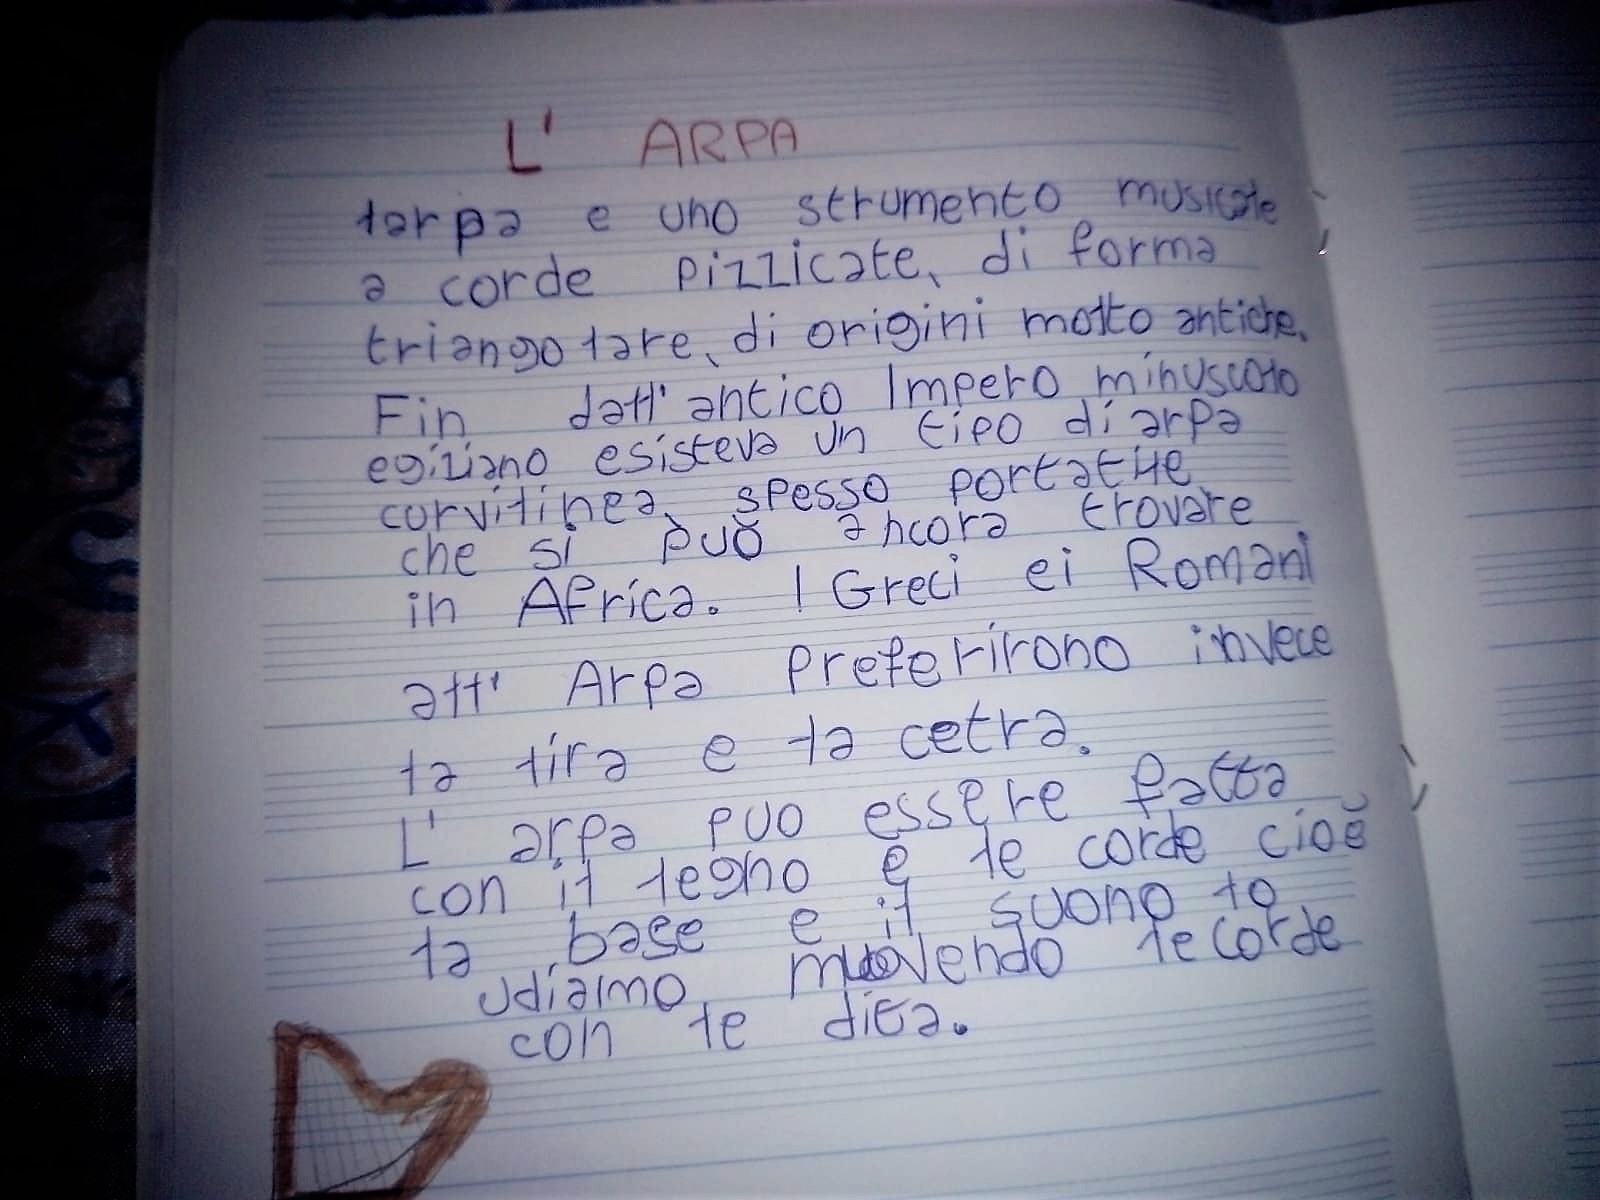 L' ARPA
larpa e uno strumento musicale
a corde pizzicate, di forma
triangolare, di origini molto antiche.
Fin dall'antico Impero minuscolo
egiziano esisteva un tipo di arpa
curvilinea, spesso portatile,
che si può ancora trovare
in Africa. I Greci ei Romani
all' Arpa preferirono invece
la lira e la cetra.
L' arpa puo essere fatta
con il legno e le corde cioè
la base e il suono lo
udiamo muovendo le corde
con le dita.